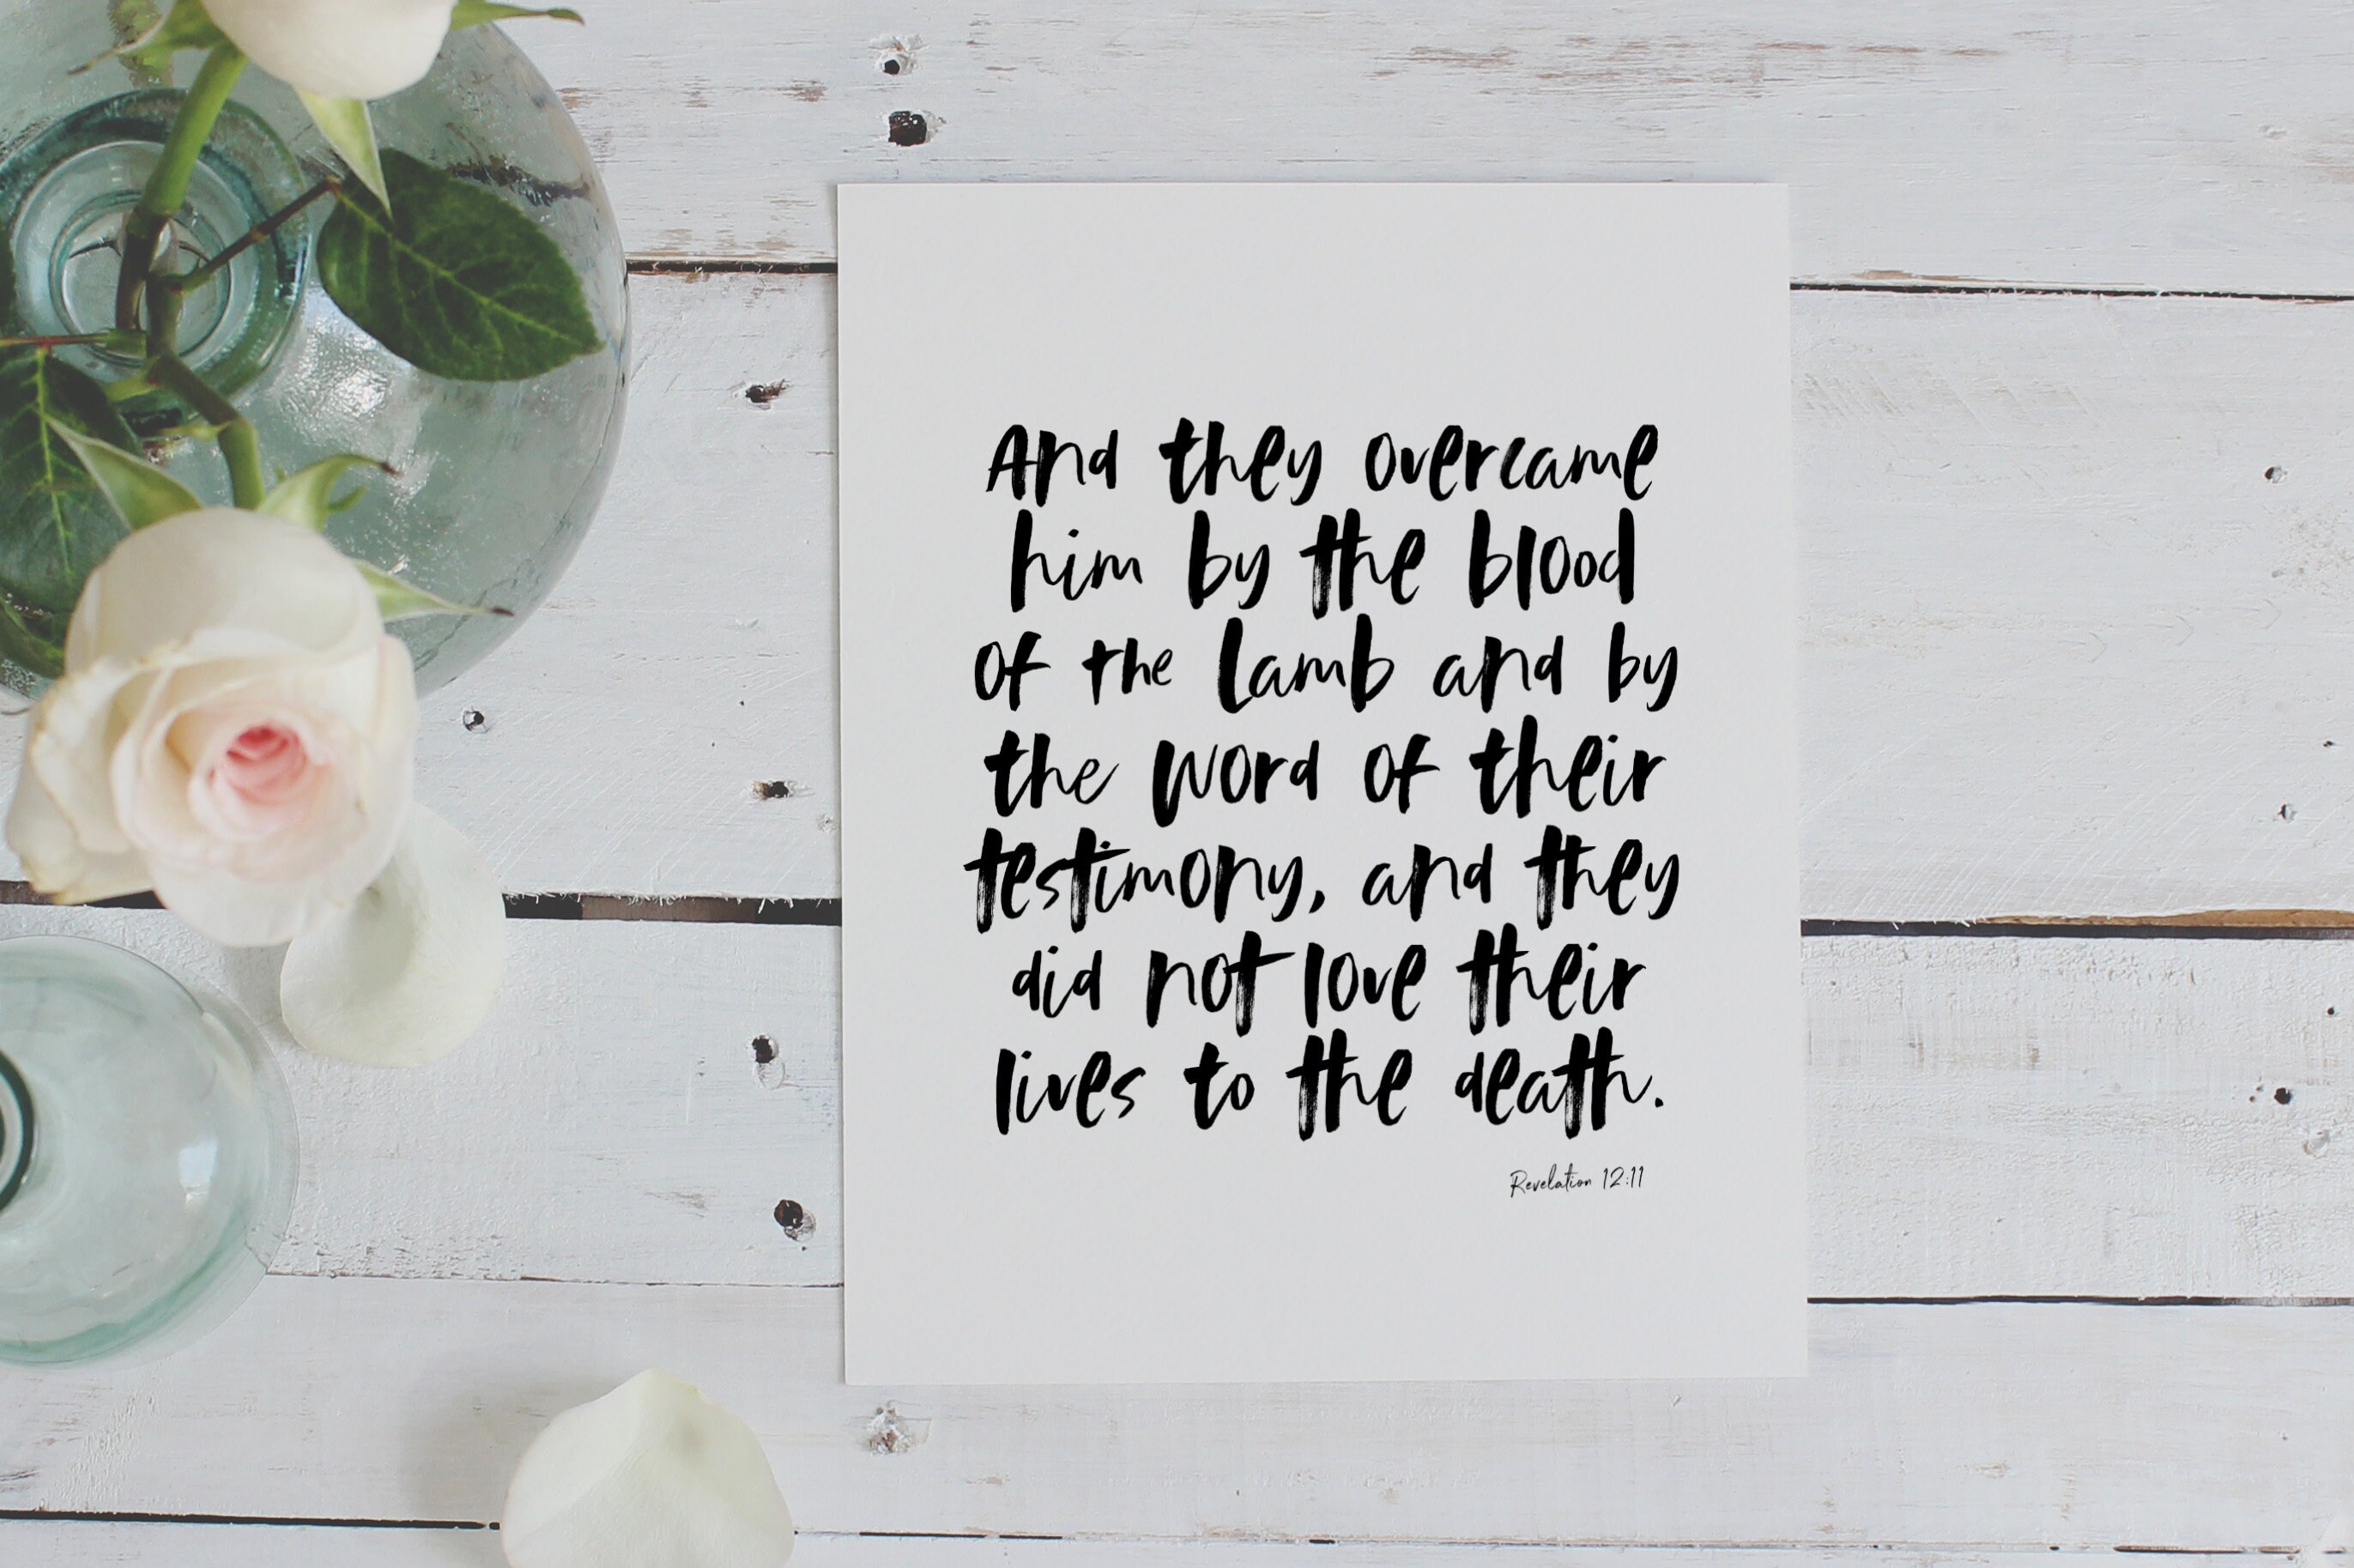 And they overcame
him by the blood
of the Lamb and by
the word of their
testimony, and they
did not love their
lives to the death.
Revelation 12:11